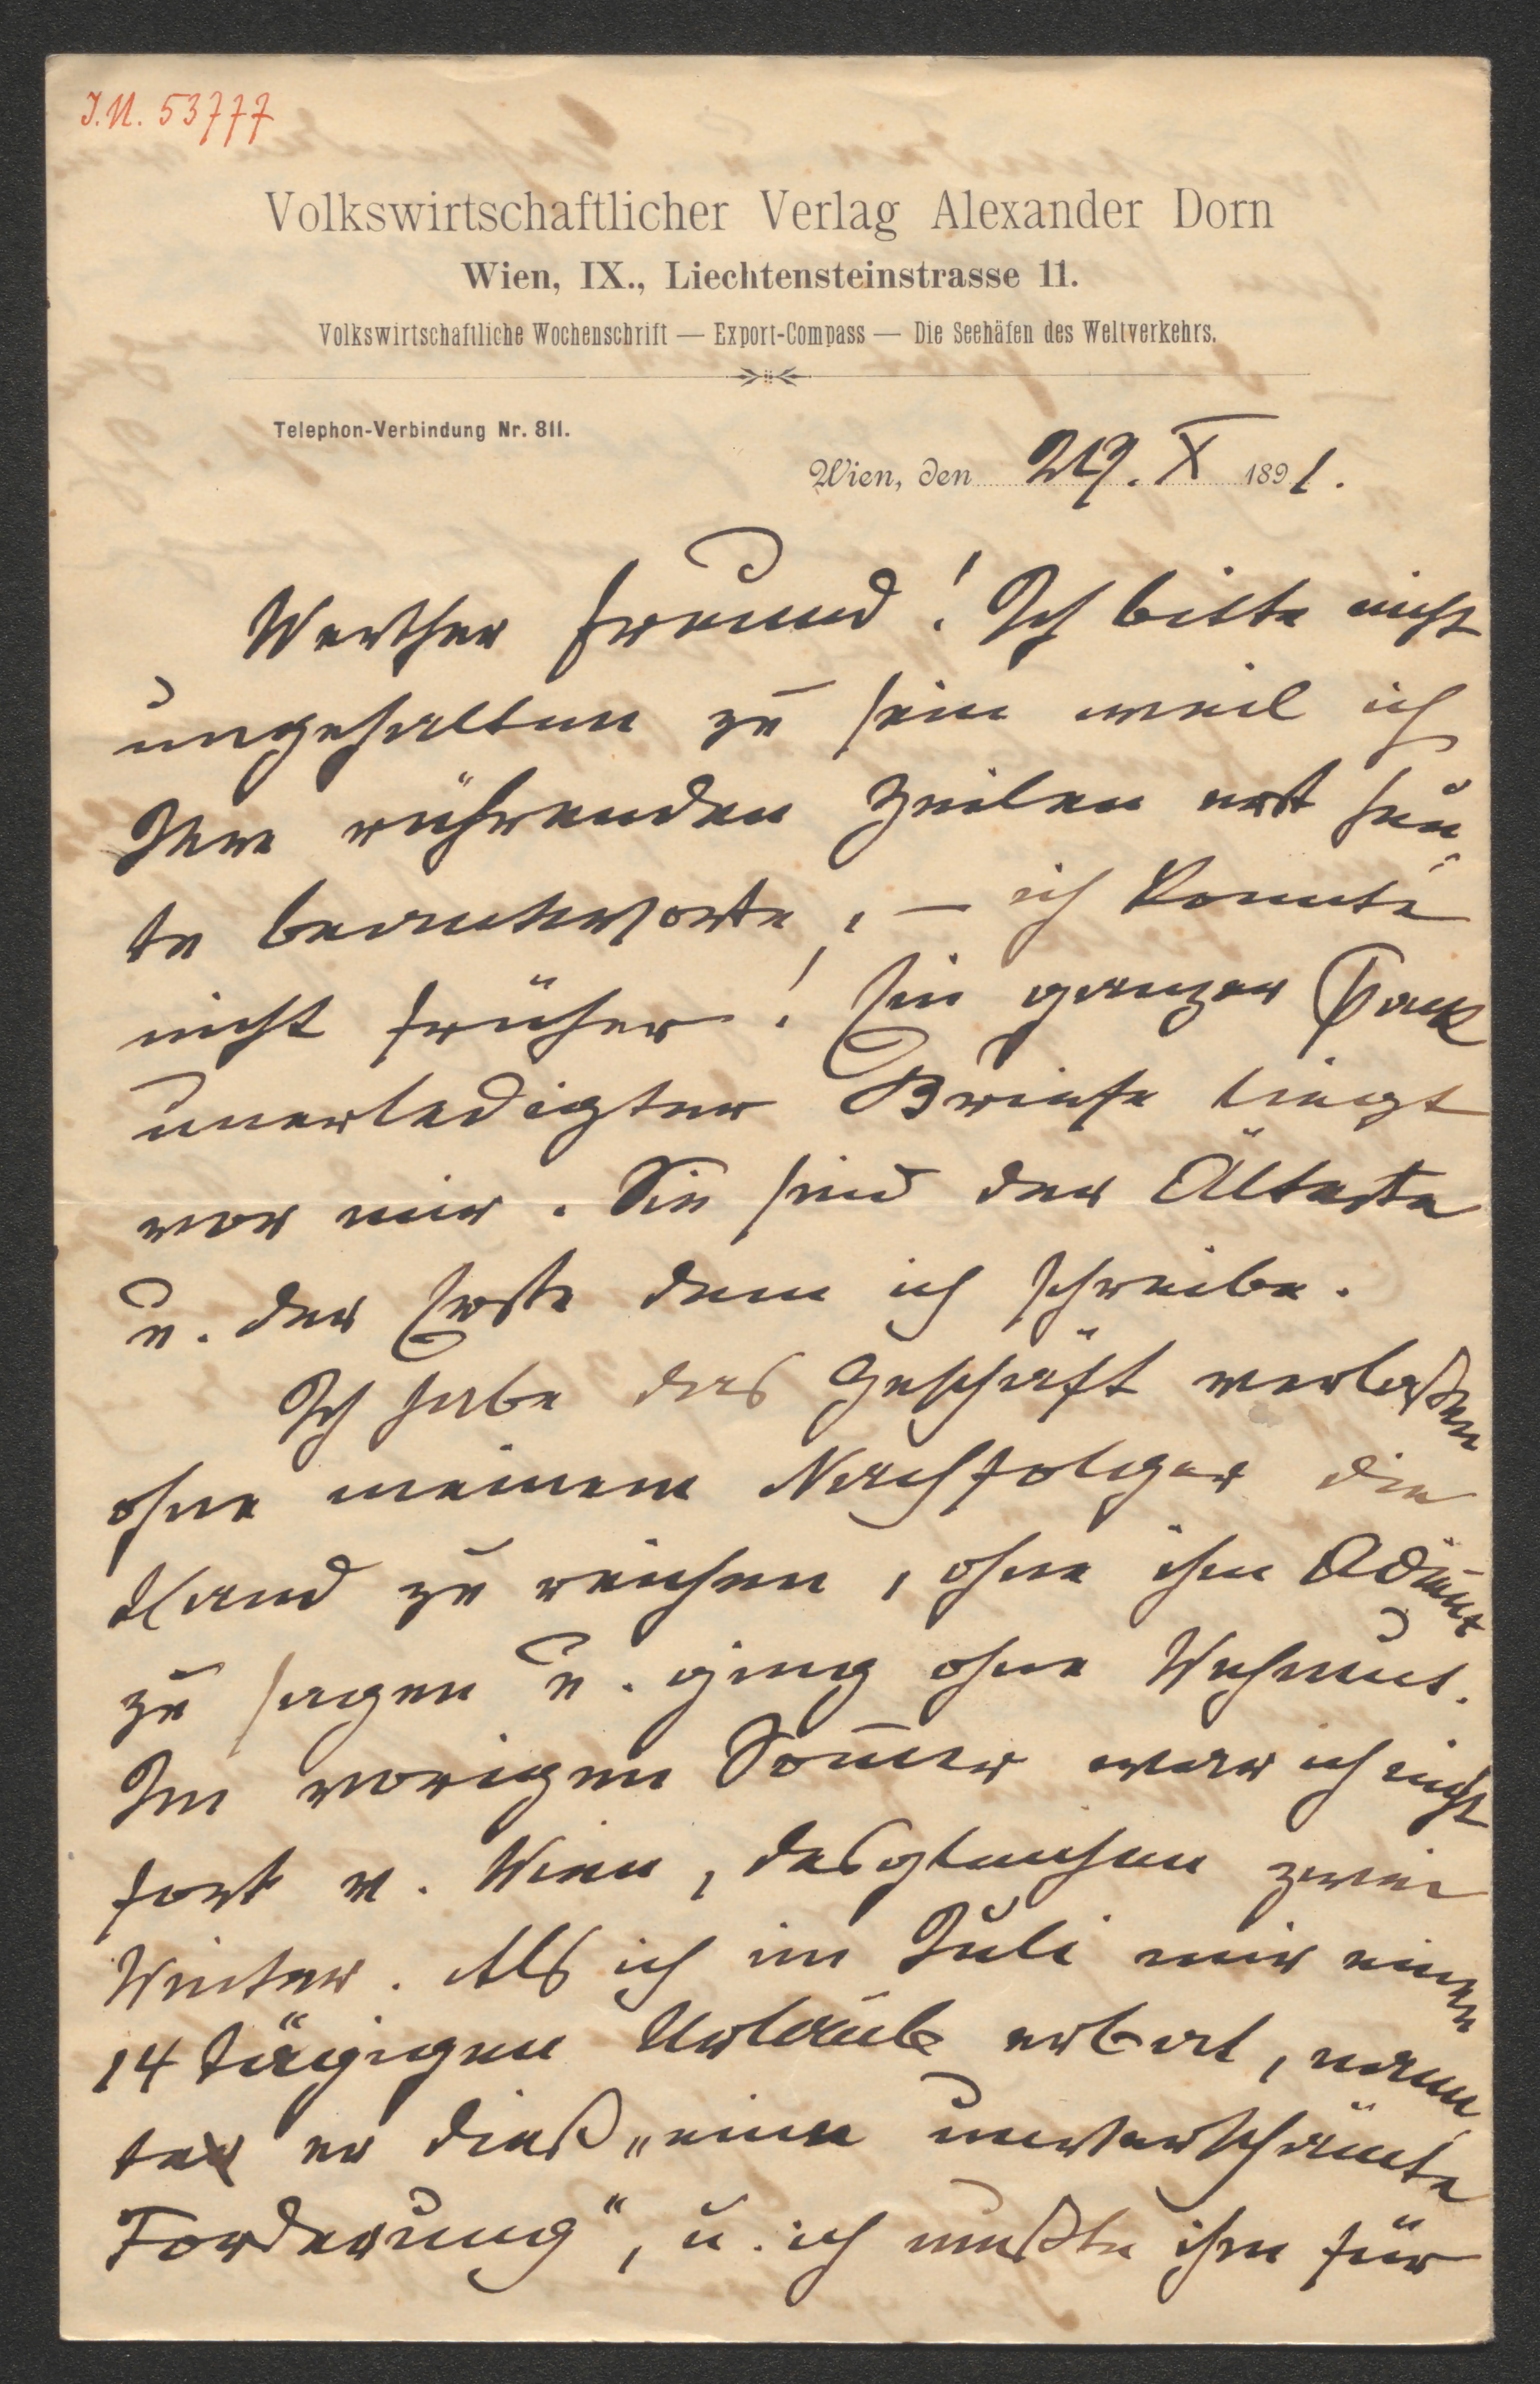 J.N. 53777
Volkswirtschaftlicher Verlag Alexander Dorn
Wien, IX., Liechtensteinstrasse 11.
Volkswirtschaftliche Wochenschrift — Export-Compass — Die Seehäfen des Weltverkehrs.
Telephon-Verbindung Nr. 811.
Wien, den 29. X 1891.
Werther Freund! Ich bitte nicht
ungehalten zu sein weil ich
Ihre rührenden Zeilen erst heu-
te beantworte, — ich konnte
nicht früher! Ein ganzer Pack
unerledigter Briefe liegt
vor mir. Sie sind der Älteste
u. der Erste dem ich schreibe.
Ich habe das Geschäft verlaßen
ohne meinem Nachfolger die
Hand zu reichen, ohne ihm Adieux
zu sagen u. ging ohne Wehmut.
Im vorigen Som̅er war ich nicht
fort v. Wien, desgleichen zwei
Winter. Als ich im Juli mir einen
14 tägigen Urlaub erbat, nann
te er dieß „eine unverschämte
Forderung“, u. ich mußte ihm für